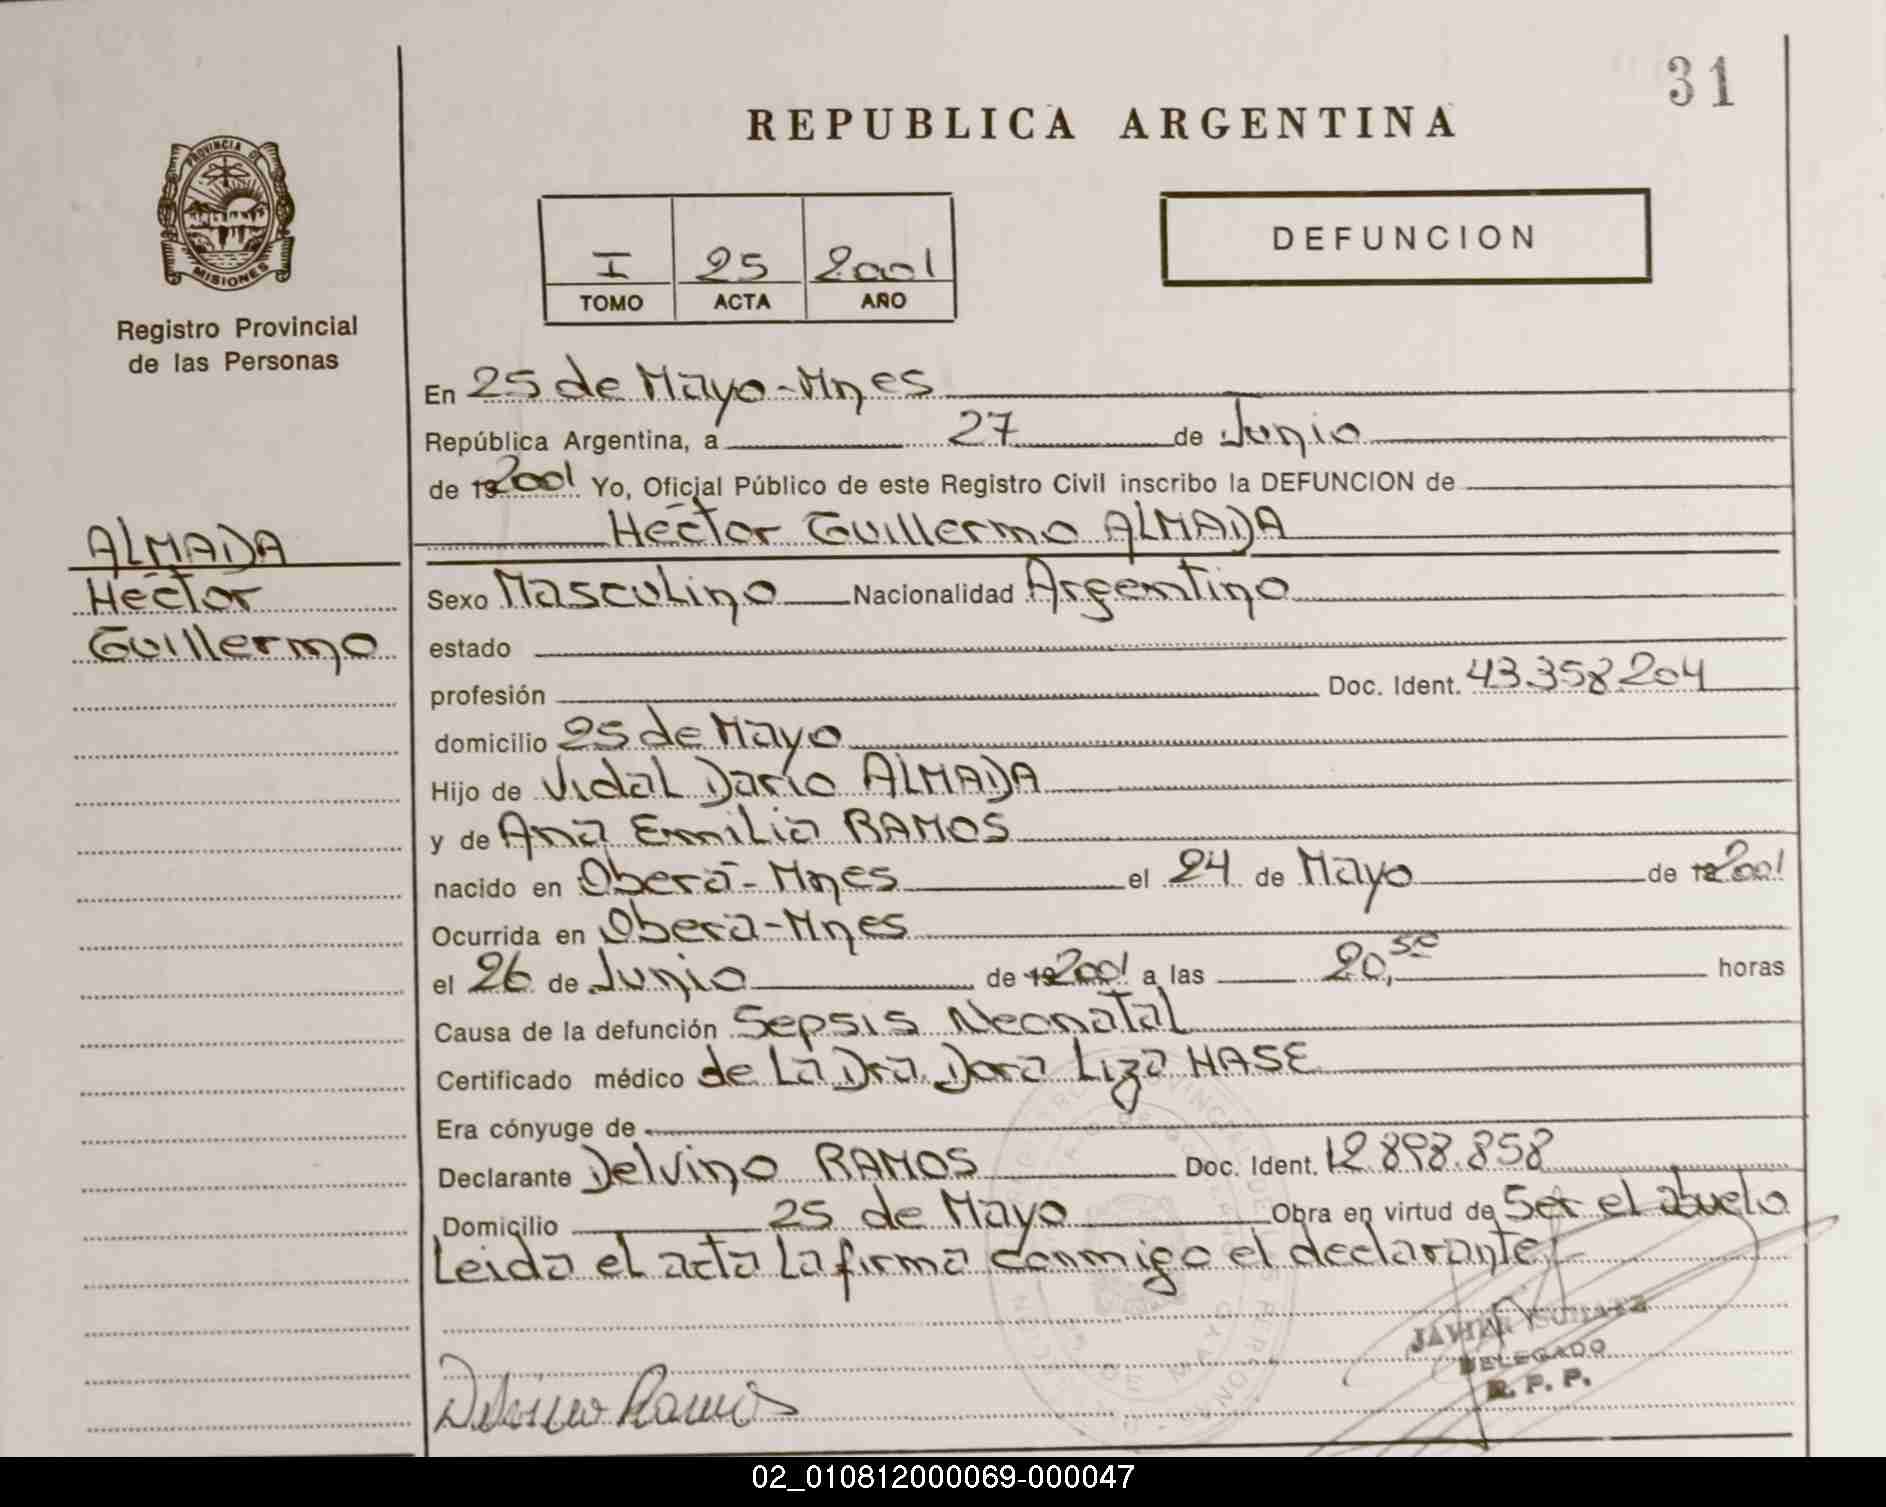 31
REPUBLICA ARGENTINA
PROVINCIA DE
MISIONES
Registro Provincial
de las Personas
I 25 2001
TOMO ACTA AÑO
DEFUNCION
En 25 de Mayo-Mnes
República Argentina, a 27 de Junio
de 192001 Yo, Oficial Público de este Registro Civil inscribo la DEFUNCION de
Héctor Guillermo ALMADA
ALMADA
Héctor
Guillermo
Sexo Masculino Nacionalidad Argentino
estado
profesión Doc. Ident. 43.358.204
domicilio 25 de Mayo
Hijo de Vidal Darío ALMADA
y de Ana Emilia RAMOS
nacido en Oberá-Mnes el 24 de Mayo de 192001
Ocurrida en Oberá-Mnes
el 26 de Junio de 192001 a las 20,50 horas
Causa de la defunción Sepsis Neonatal
Certificado médico de La Dra. Dora Liza HASE
Era cónyuge de
Declarante Delvino RAMOS Doc. Ident. 12.898.858
Domicilio 25 de Mayo Obra en virtud de Ser el abuelo
Leida el acta la firma conmigo el declarante
Delvino Ramos
JAVIER
DELEGADO
R. P. P.
02_010812000069-000047